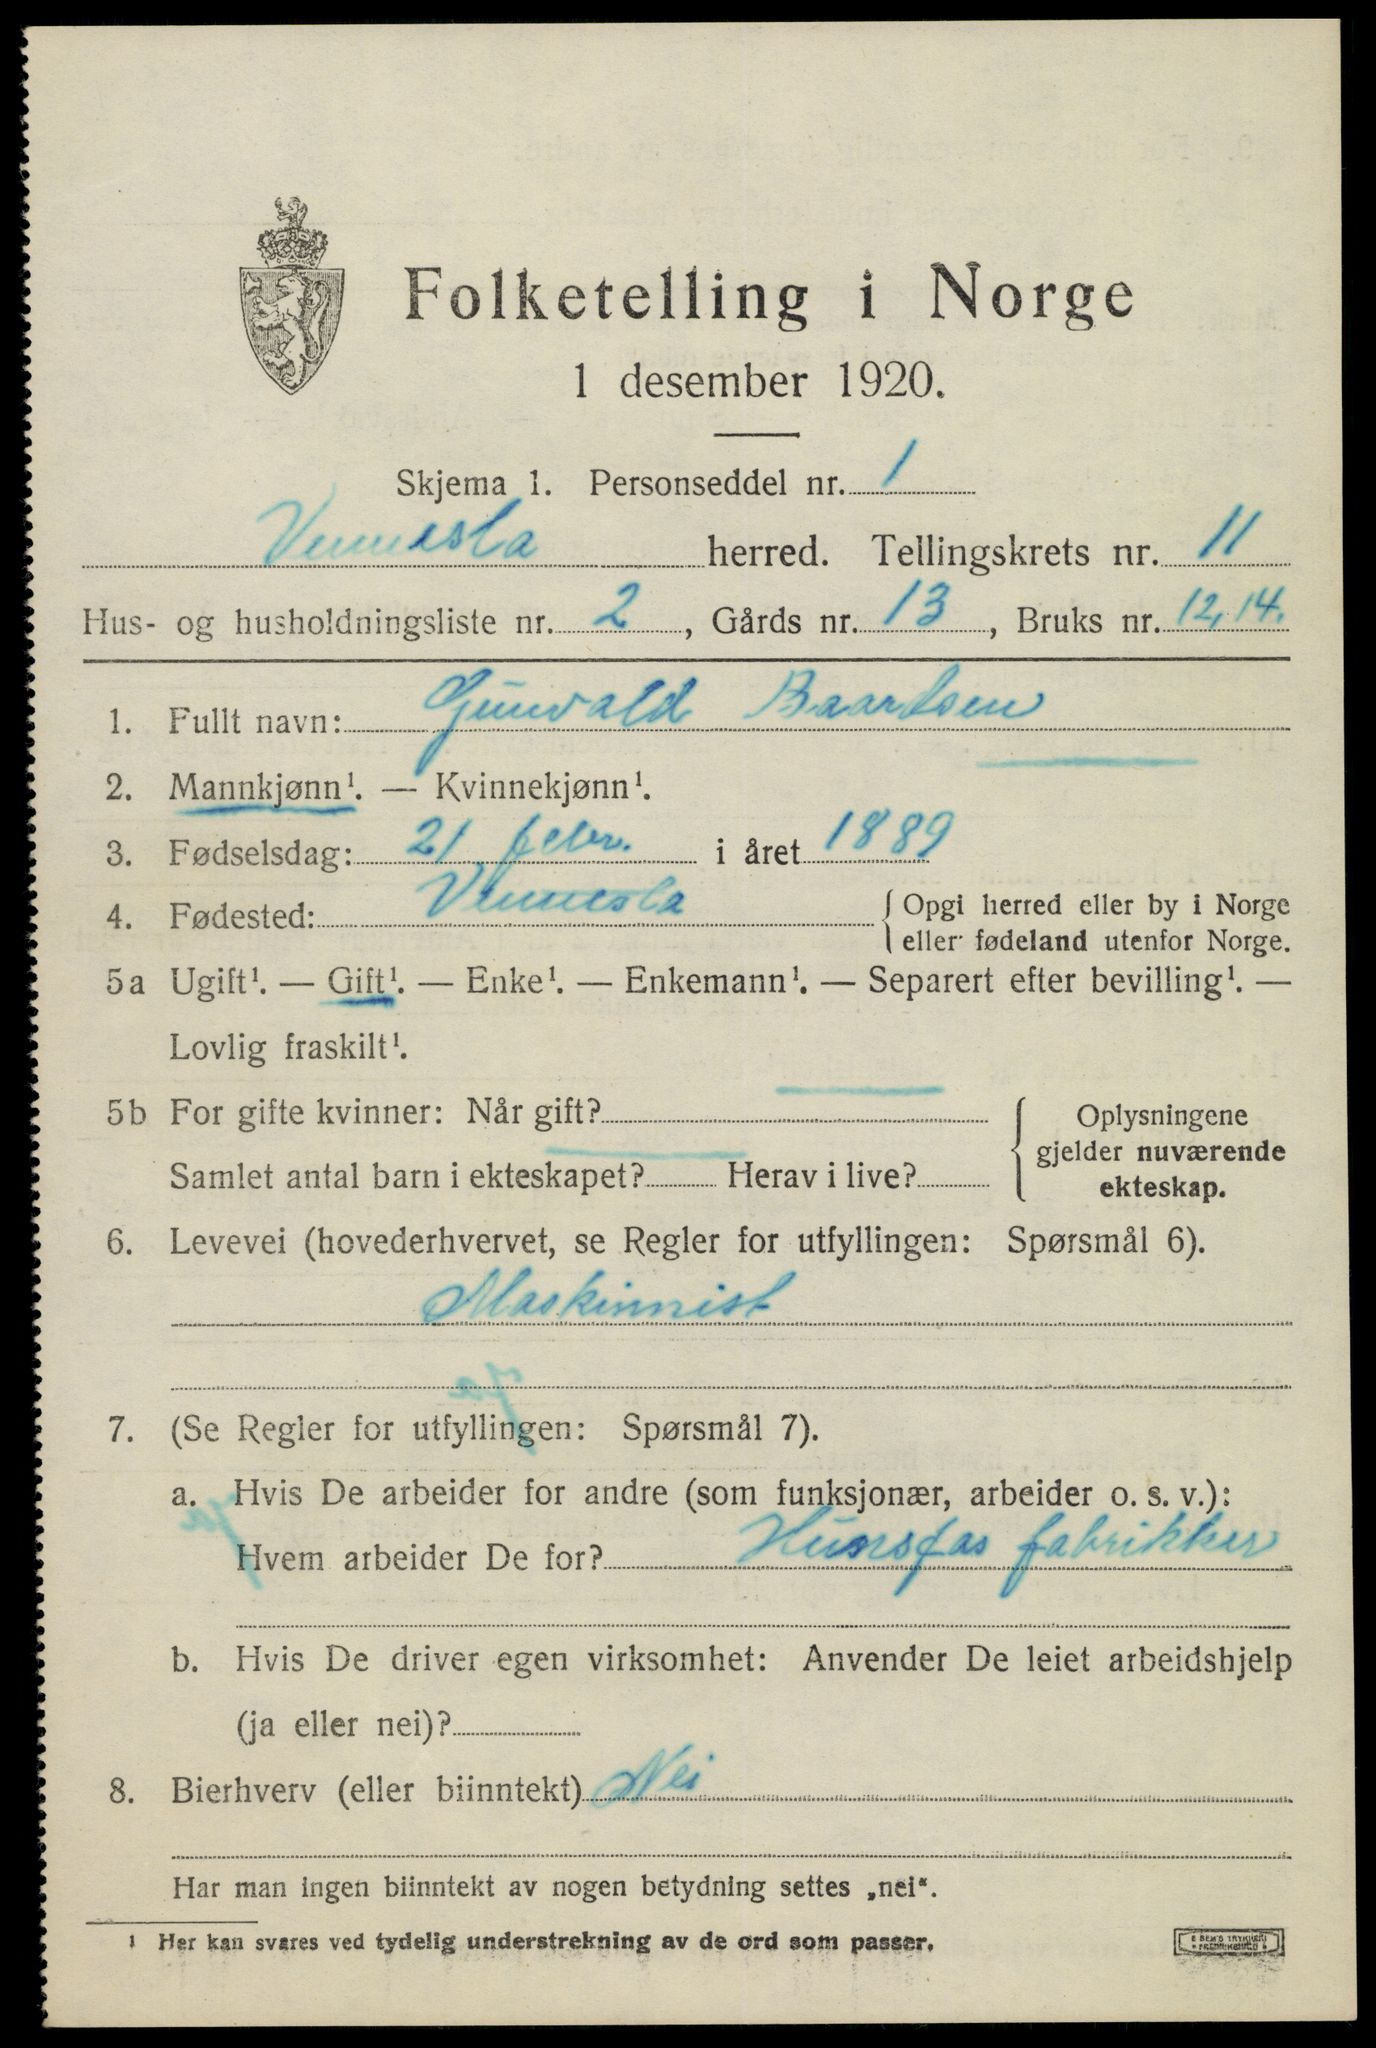 Folketelling i Norge
1 desember 1920.
Skjema 1. Personseddel nr. 1
Vennesla herred. Tellingskrets nr. 11
Hus- og husholdningsliste nr. 2, Gårds nr. 13, Bruks nr. 12, 14.
1. Fullt navn: Gunvald Baardsen
2. Mannkjønn¹. — Kvinnekjønn¹.
3. Fødselsdag: 21 febr. i året 1889
4. Fødested: Vennesla { Opgi herred eller by i Norge
eller fødeland utenfor Norge.
5a Ugift¹. — Gift¹. — Enke¹. — Enkemann¹. — Separert efter bevilling¹. —
Lovlig fraskilt¹.
5b For gifte kvinner: Når gift?
Samlet antal barn i ekteskapet? Herav i live?
{ Oplysningene
gjelder nuværende
ekteskap.
6. Levevei (hovederhvervet, se Regler for utfyllingen: Spørsmål 6).
Maskinnist
7. (Se Regler for utfyllingen: Spørsmål 7).
a. Hvis De arbeider for andre (som funksjonær, arbeider o. s. v.):
Hvem arbeider De for? Hunsfos fabrikker
b. Hvis De driver egen virksomhet: Anvender De leiet arbeidshjelp
(ja eller nei)?
8. Bierhverv (eller biinntekt) Nei
Har man ingen biinntekt av nogen betydning settes „nei“.
¹ Her kan svares ved tydelig understrekning av de ord som passer.